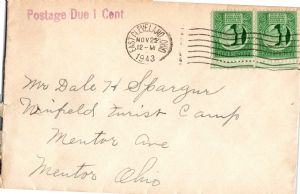 Postage Due 1 Cent
EAST CLEVELAND, OHIO
NOV 22
12-M
1943
Mr Dale H Spargur
Winfield Turist Camp
Mentor Ave
Mentor Ohio